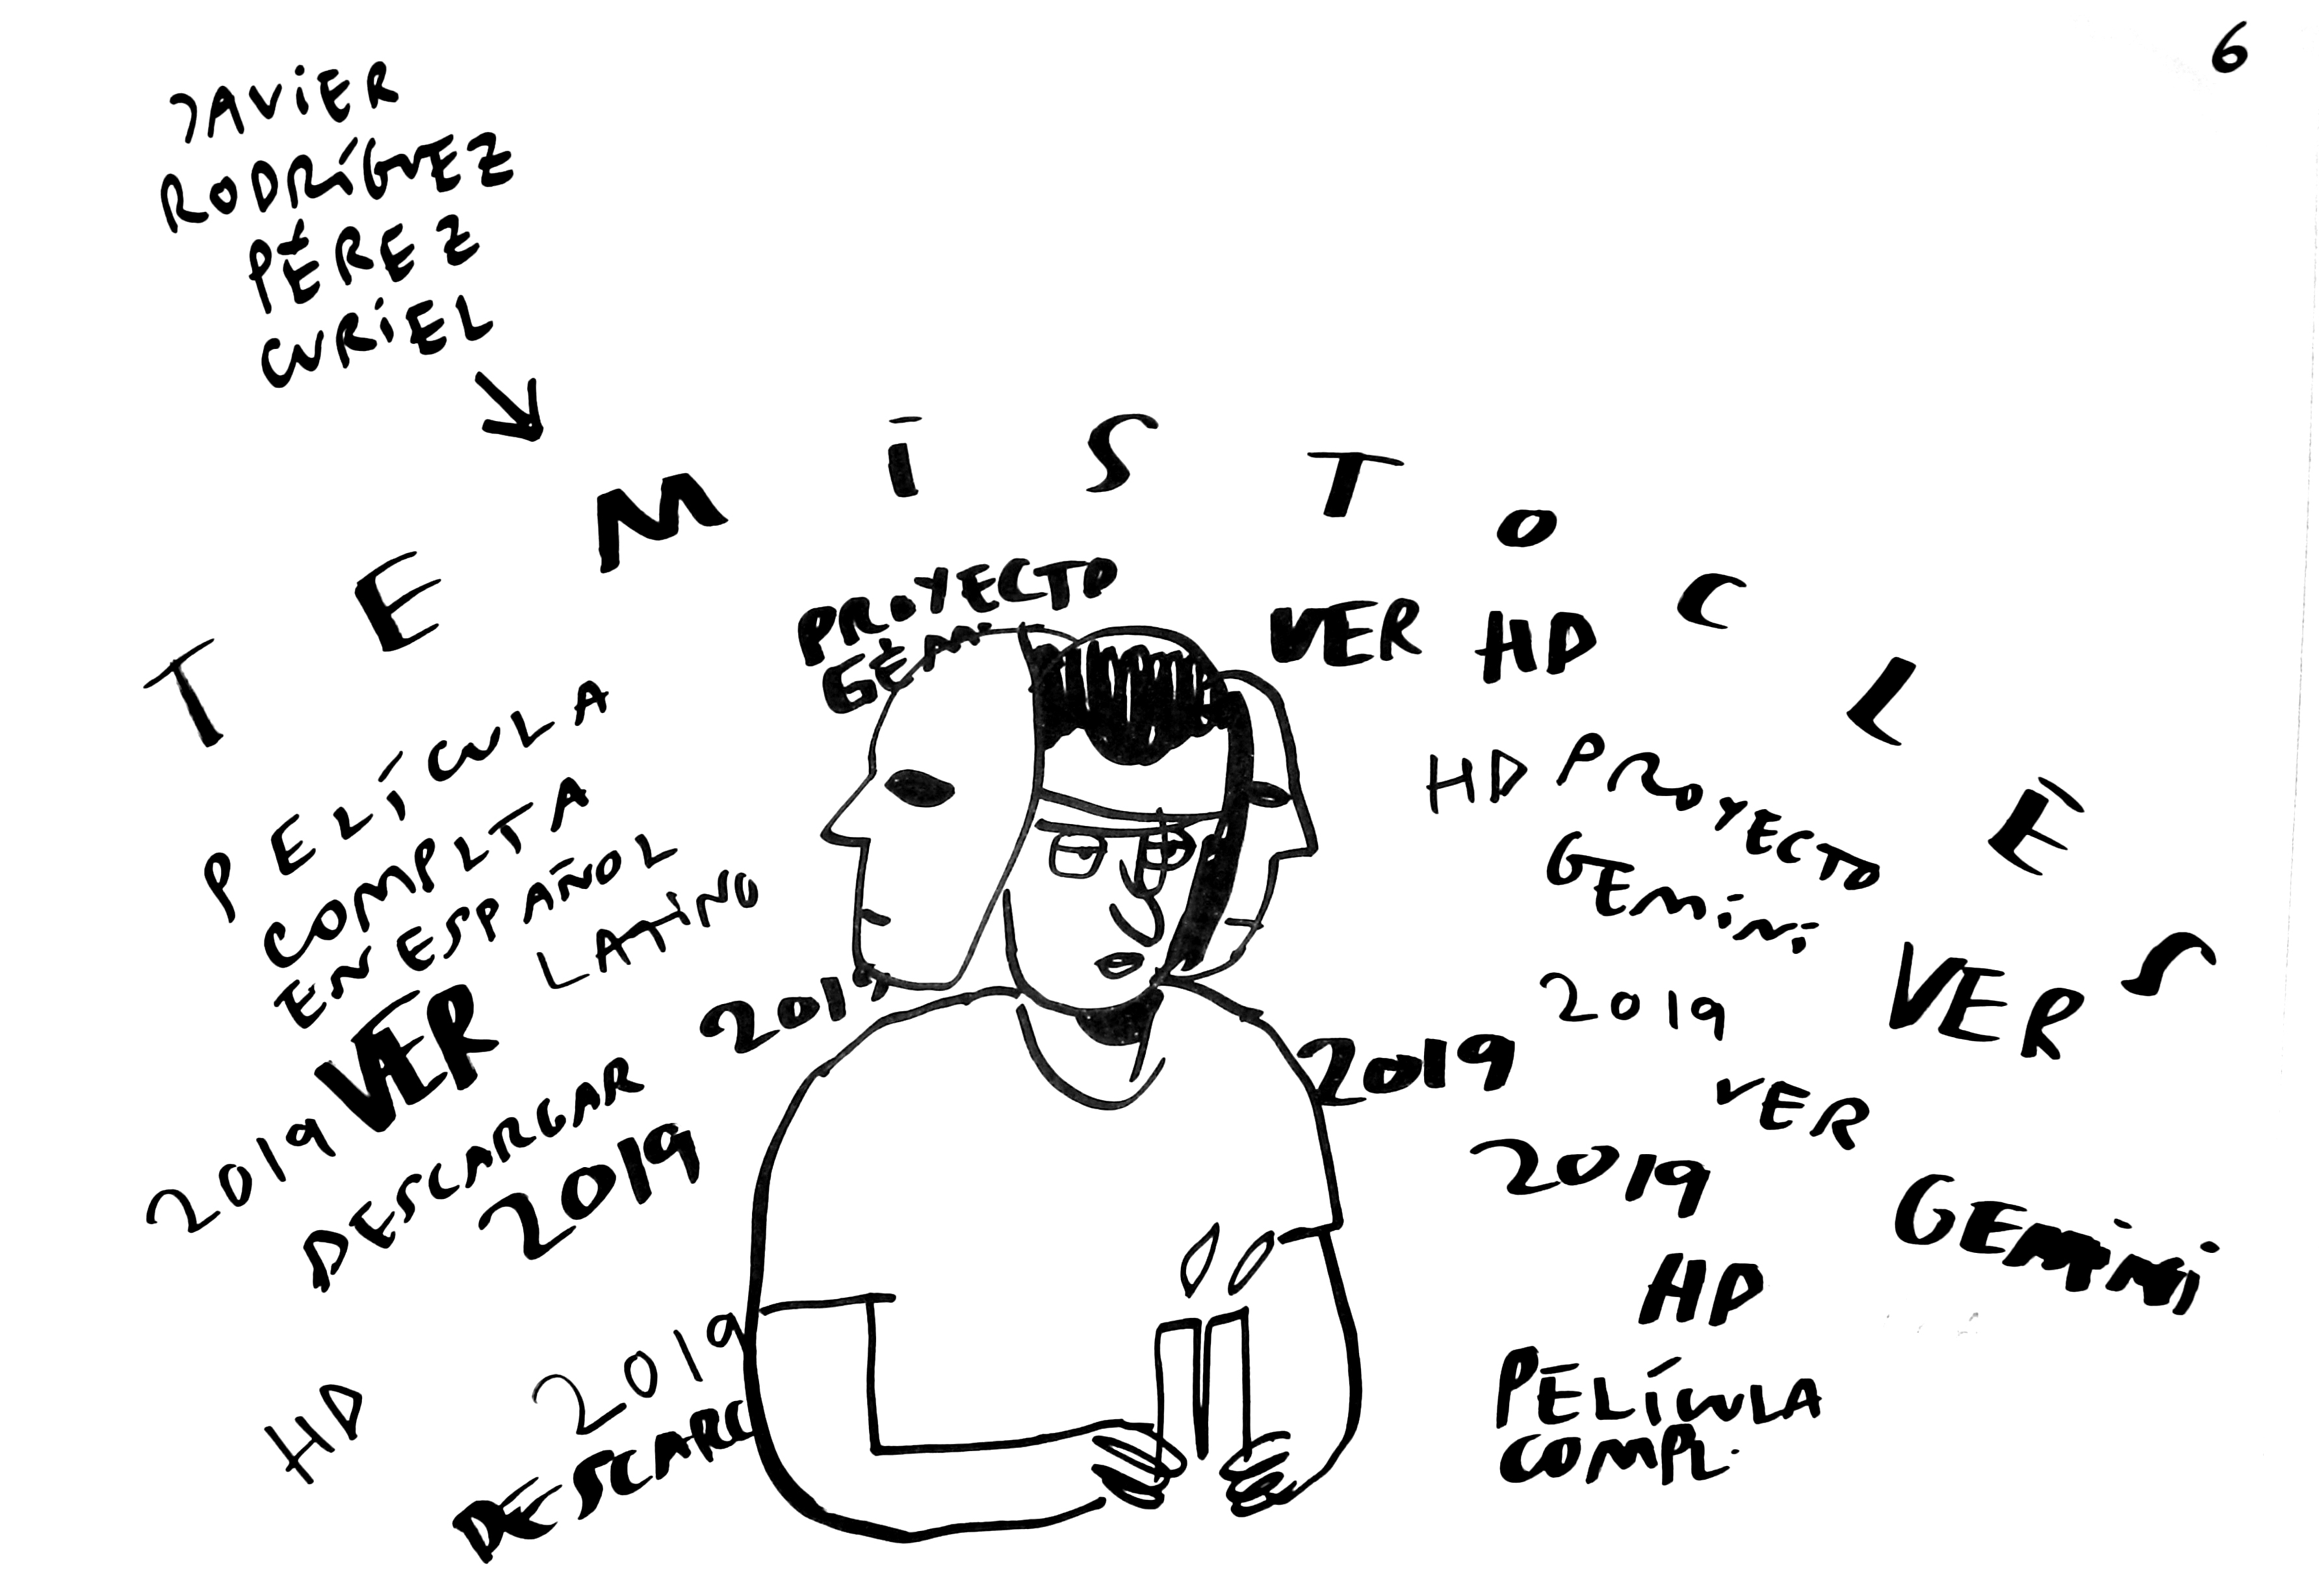 6
JAVIER
RODRÍGUEZ
PÉREZ
CURIEL
TEMISTOCLES
PROYECTO
GEMI
VER HD
PELÍCULA
COMPLTA
EN ESPAÑOL
LATINO
2019 VER
DESCARGAR
2019
2019
HD
2019
DESCARG
HD PROYECTO
GEMINI
2019
VER
2019
VER
2019
GEMINI
HD
PELÍCULA
COMPL.